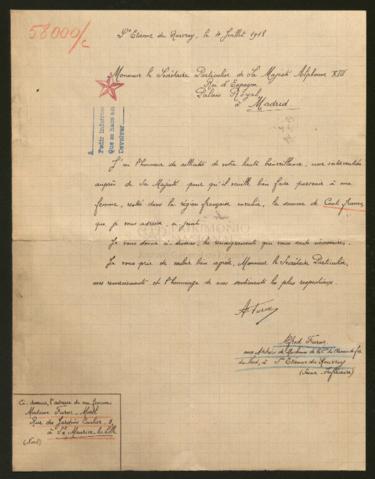 58000/c
St Etienne du Rouvray, le 4 Juillet 1918
Monsieur le Secrétaire Particulier de Sa Majesté Alphonse XIII
Roi d'Espagne
Palais Royal
à Madrid
Pedir informes
Que se hace en
Devolver
J'ai l'honneur de solliciter de votre haute bienveillance, une intervention
auprès de Sa Majesté pour qu'il veuille bien faire parvenir à ma
femme, restée dans la région française envahie, la somme de Cent francs
que je vous adresse, à part.
Je vous donne ci-dessous, les renseignements qui vous sont nécessaires.
Je vous prie de vouloir bien agréer, Monsieur le Secrétaire Particulier,
mes remerciements et l'hommage de mes sentiments les plus respectueux.
aux Ateliers de Machines de la Cie du Chemin de fer
du Nord, à St Etienne du Rouvray
(Seine-Inférieure)
Ci-dessous, l'adresse de ma femme
Madame
Rue des Jardins
à St Maurice-lez-Lille
(Nord)